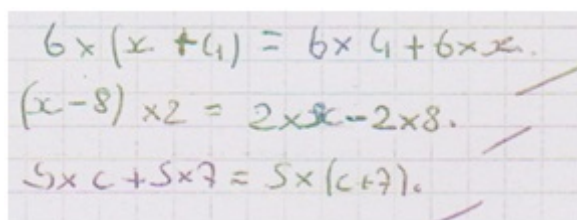 6 × (x + 4) = 6 × 4 + 6 × x.
(x - 8) × 2 = 2 × x - 2 × 8.
5 × c + 5 × 7 = 5 × (c + 7).